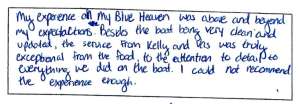 My experience on My Blue Heaven was above and beyond
my expectations. Besides the boat being very clean and
updated, the service from Kelly and was truly
exceptional from the food, to the attention to detail to
everything we did on the boat. I could not recommend
the experience enough.